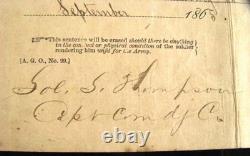 September 1865
"This sentence will be erased should there be anything
in the conduct or physical condition of the soldier
rendering him unfit for the Army.
[A. G. O., No. 99.]
Sol. S. Simpson
Capt Com dg Co.